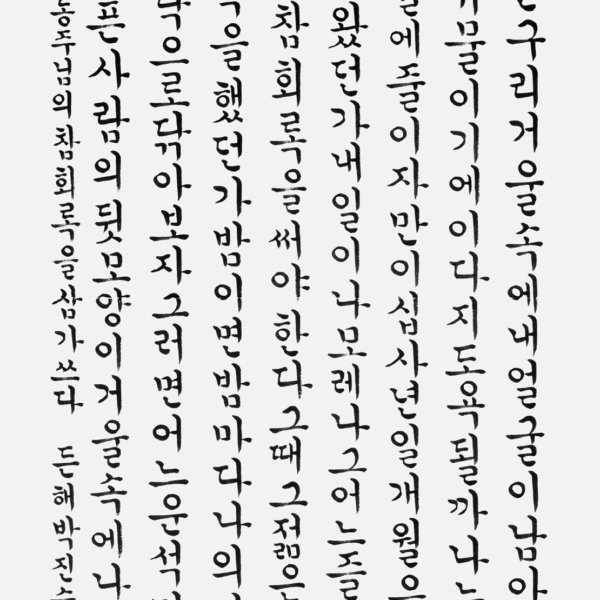 구리거울속에내얼굴이남아
물이기에이다지도욕될까나
에줄이자만이십사년일개월으
왔던가내일이나모레나그어느줄
참회록을써야한다그때그젊은
을했던가밤이면밤마다나의
으로닦아보자그러면어느운석
픈사람의뒷모양이거울속에나
동주님의참회록을삼가쓰다 든해박진